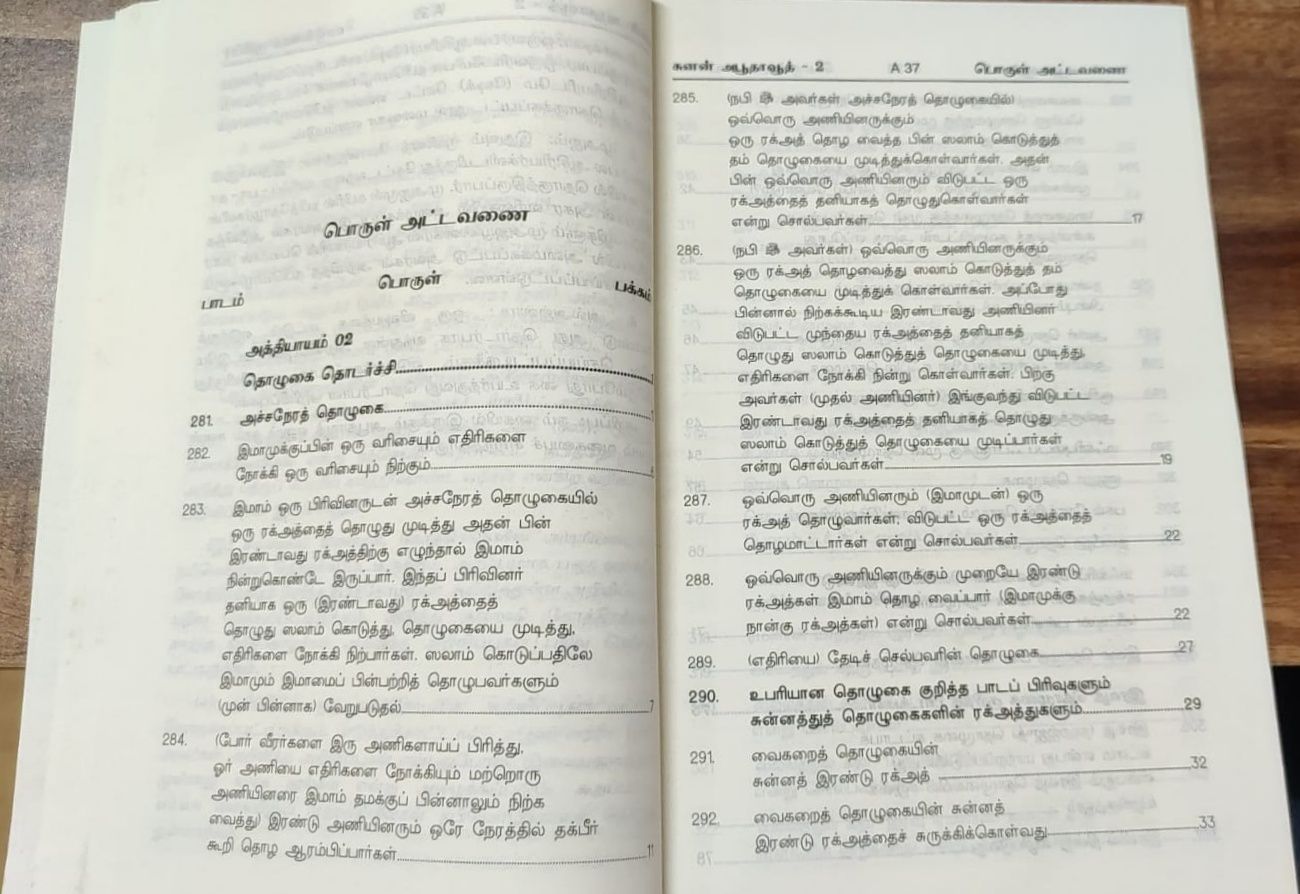 பொருள் அட்டவணை
பாடம் பொருள் பக்கம்
அத்தியாயம் 02
தொழுகை தொடர்ச்சி 1
281. அச்சநேரத் தொழுகை 1
282. இமாமுக்குப்பின் ஒரு வரிசையும் எதிரிகளை
நோக்கி ஒரு வரிசையும் நிற்கும்
283. இமாம் ஒரு பிரிவினருடன் அச்சநேரத் தொழுகையில்
ஒரு ரக்அத்தைத் தொழுது முடித்து அதன் பின்
இரண்டாவது ரக்அத்திற்கு எழுந்தால் இமாம்
நின்றுகொண்டே இருப்பார். இந்தப் பிரிவினர்
தனியாக ஒரு (இரண்டாவது) ரக்அத்தைத்
தொழுது ஸலாம் கொடுத்து, தொழுகையை முடித்து,
எதிரிகளை நோக்கி நிற்பார்கள். ஸலாம் கொடுப்பதிலே
இமாமும் இமாமைப் பின்பற்றித் தொழுபவர்களும்
(முன் பின்னாக) வேறுபடுதல் 7
284. (போர் வீரர்களை இரு அணிகளாய்ப் பிரித்து,
ஓர் அணியை எதிரிகளை நோக்கியும் மற்றொரு
அணியினரை இமாம் தமக்குப் பின்னாலும் நிற்க
வைத்து) இரண்டு அணியினரும் ஒரே நேரத்தில் தக்பீர்
கூறி தொழ ஆரம்பிப்பார்கள் 11
சுனன் அபூதாவூத் - 2 A 37 பொருள் அட்டவணை
285. (நபி ﷺ அவர்கள் அச்சநேரத் தொழுகையில்)
ஒவ்வொரு அணியினருக்கும்
ஒரு ரக்அத் தொழ வைத்த பின் ஸலாம் கொடுத்துத்
தம் தொழுகையை முடித்துக்கொள்வார்கள். அதன்
பின் ஒவ்வொரு அணியினரும் விடுபட்ட ஒரு
ரக்அத்தைத் தனியாகத் தொழுதுகொள்வார்கள்
என்று சொல்பவர்கள் 17
286. (நபி ﷺ அவர்கள்) ஒவ்வொரு அணியினருக்கும்
ஒரு ரக்அத் தொழவைத்து ஸலாம் கொடுத்துத் தம்
தொழுகையை முடித்துக் கொள்வார்கள். அப்போது
பின்னால் நிற்கக்கூடிய இரண்டாவது அணியினர்
விடுபட்ட முந்தைய ரக்அத்தைத் தனியாகத்
தொழுது ஸலாம் கொடுத்துத் தொழுகையை முடித்து,
எதிரிகளை நோக்கி நின்று கொள்வார்கள். பிறகு
அவர்கள் (முதல் அணியினர்) இங்குவந்து விடுபட்ட
இரண்டாவது ரக்அத்தைத் தனியாகத் தொழுது
ஸலாம் கொடுத்துத் தொழுகையை முடிப்பார்கள்
என்று சொல்பவர்கள் 19
287. ஒவ்வொரு அணியினரும் (இமாமுடன்) ஒரு
ரக்அத் தொழுவார்கள்; விடுபட்ட ஒரு ரக்அத்தைத்
தொழமாட்டார்கள் என்று சொல்பவர்கள் 22
288. ஒவ்வொரு அணியினருக்கும் முறையே இரண்டு
ரக்அத்கள் இமாம் தொழ வைப்பார் (இமாமுக்கு
நான்கு ரக்அத்கள்) என்று சொல்பவர்கள் 22
289. (எதிரியை) தேடிச் செல்பவரின் தொழுகை 27
290. உபரியான தொழுகை குறித்த பாடப் பிரிவுகளும்
சுன்னத்துத் தொழுகைகளின் ரக்அத்துகளும் 29
291. வைகறைத் தொழுகையின்
சுன்னத் இரண்டு ரக்அத் 32
292. வைகறைத் தொழுகையின் சுன்னத்
இரண்டு ரக்அத்தைச் சுருக்கிக்கொள்வது 33